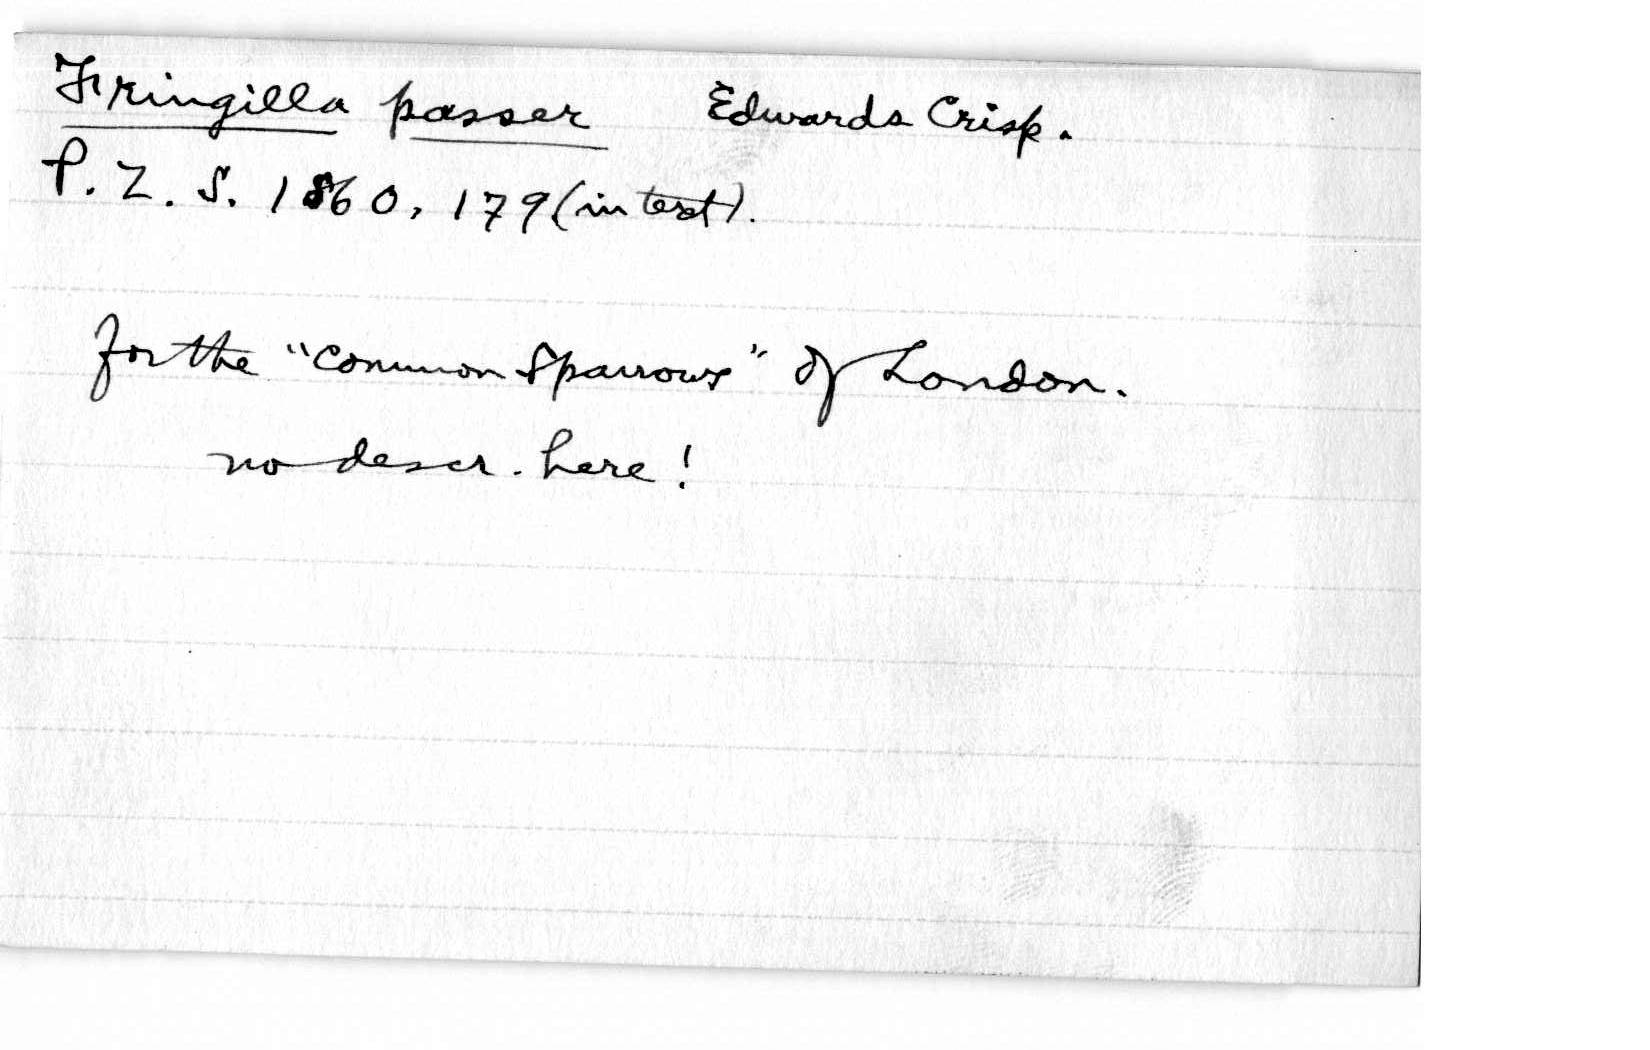 Fringilla passer Edwards Crisp.
P. Z. S. 1860, 179 (in text).
for the "common Sparrows" of London.
no descr. here!